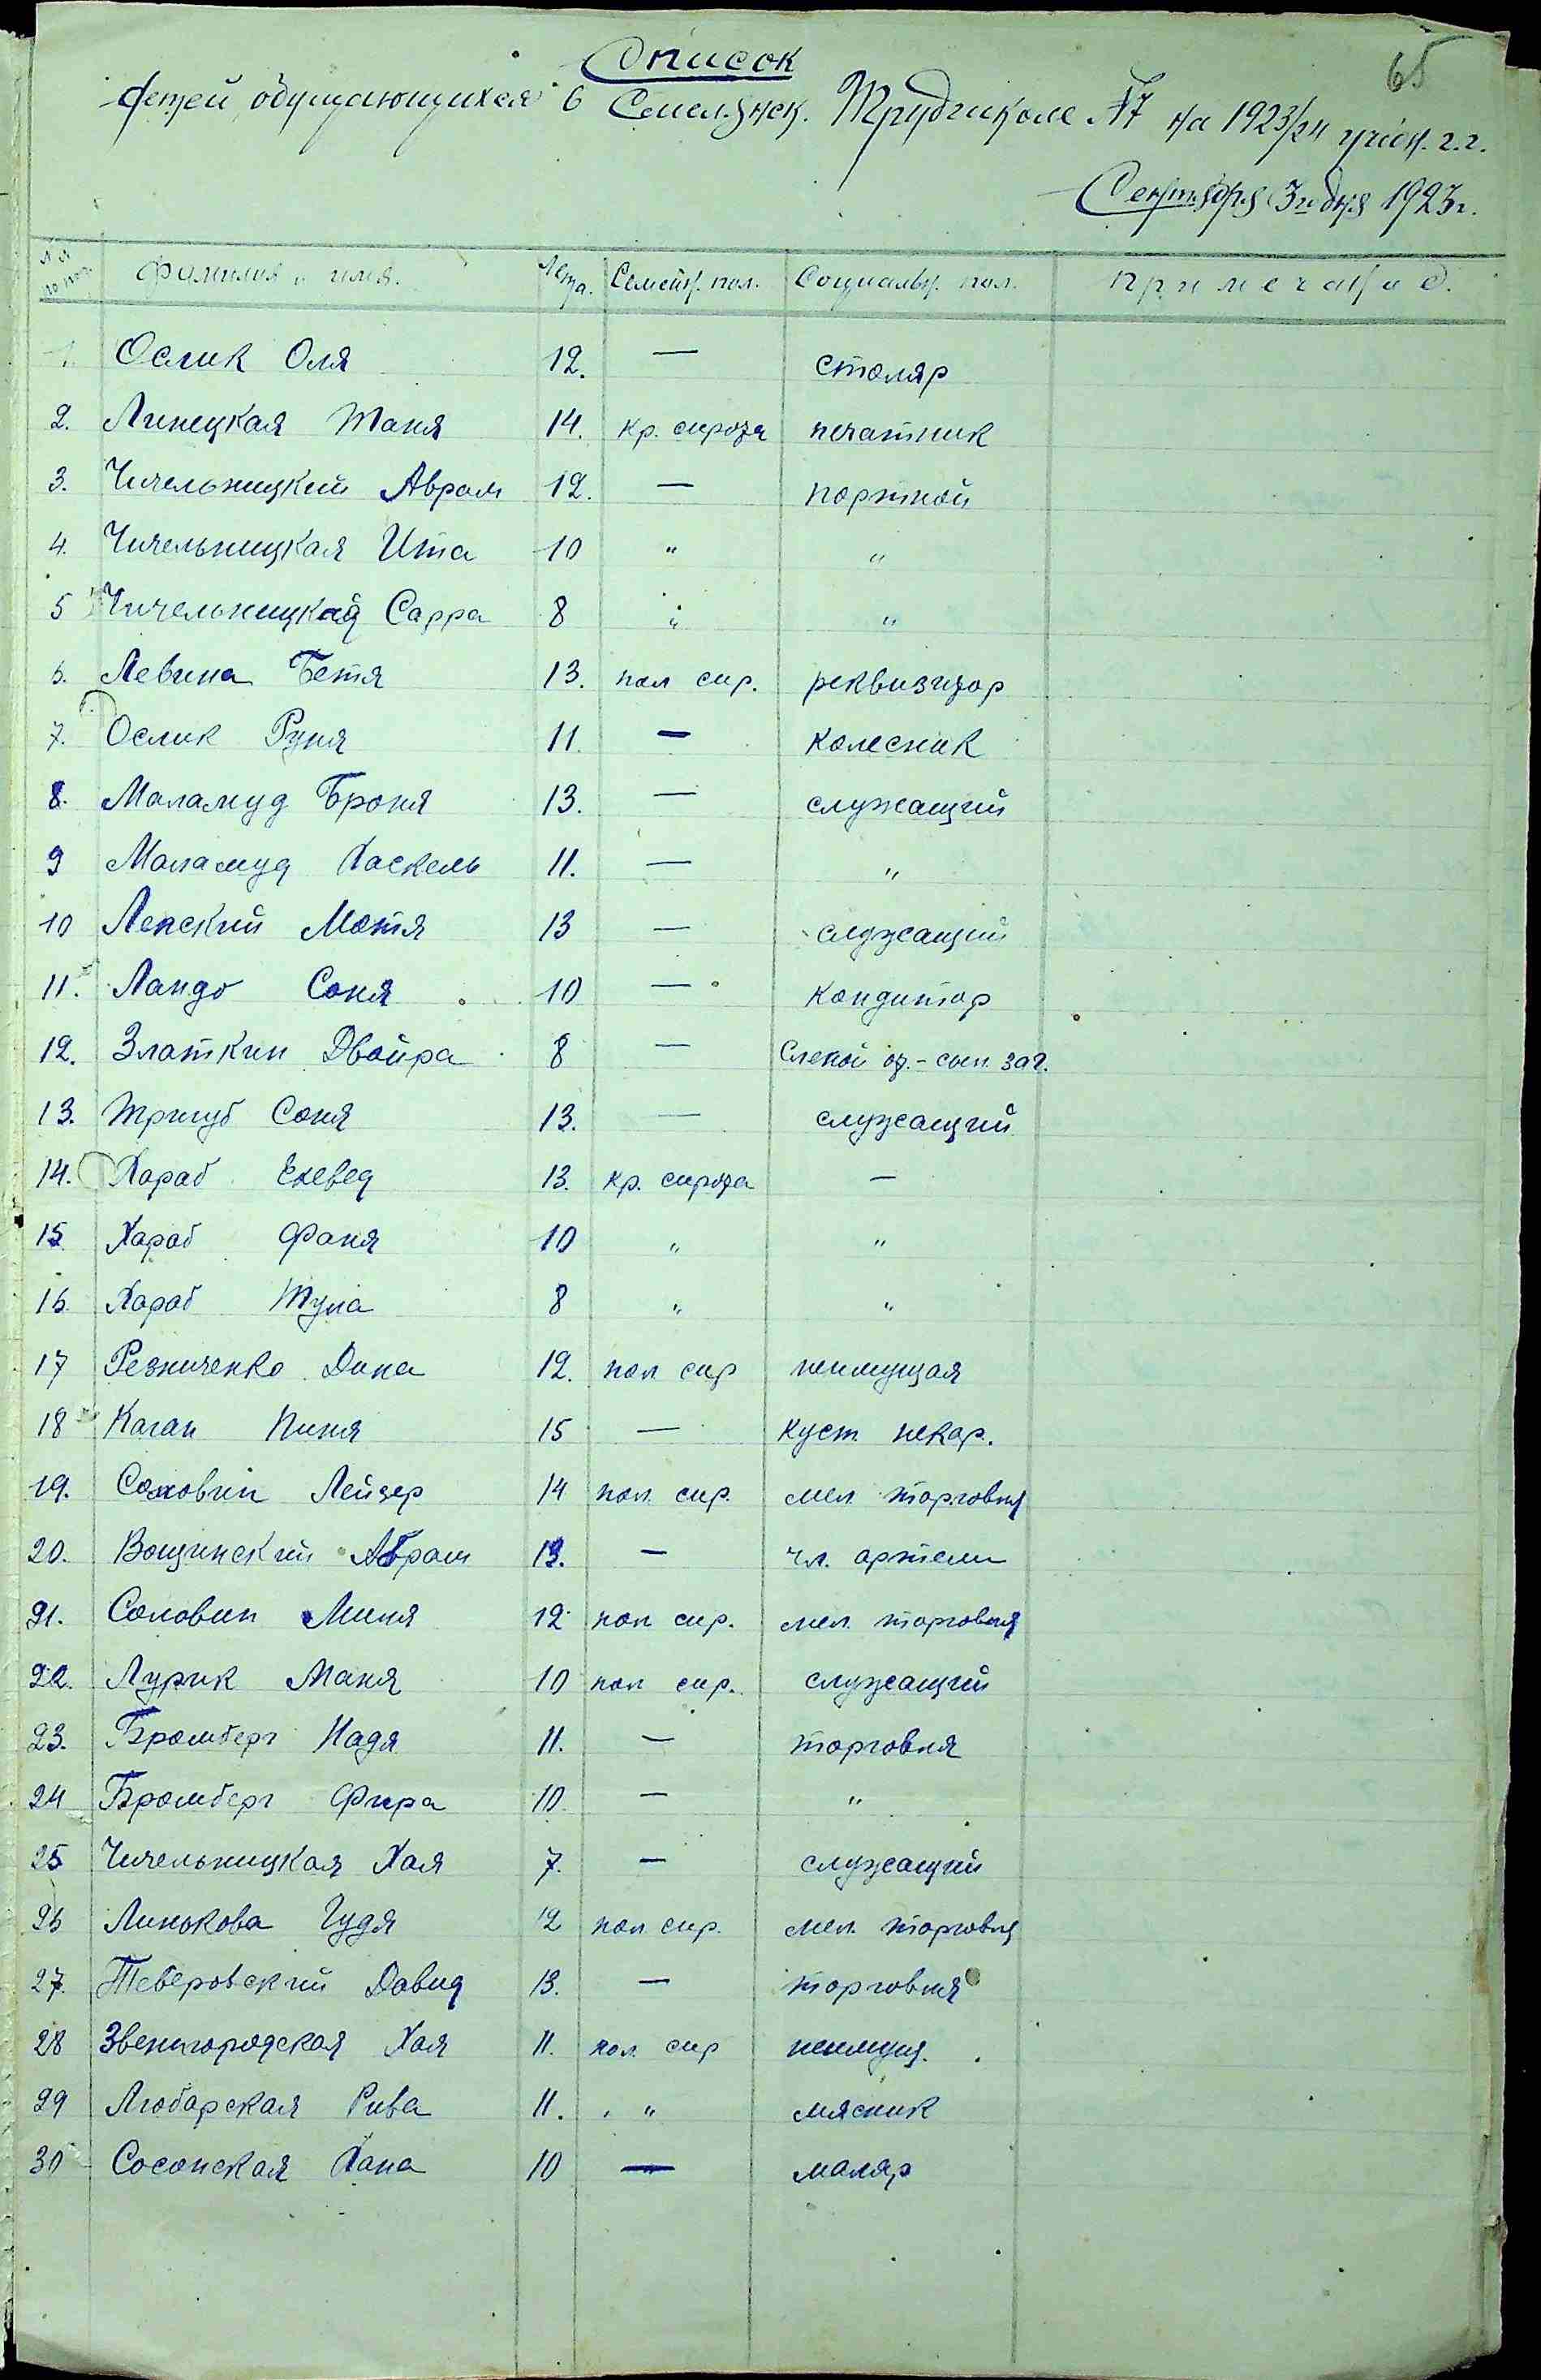 65
Список
детей обучающихся в Смелянск. Трудшколе №7 на 1923/24 учебн. г.г.
Сентября 3го дня 1923г.
№№ по пор. Фамилия и имя. Лета. Семейн. пол. Социальн. пол. Примечание.
1. Ослик Оля 12. — столяр
2. Линецкая Таня 14. кр. сирота печатник
3. Чичельницкий Аврам 12. — портной
4. Чичельницкая Ита 10 " "
5 Чичельницкая Сарра 8 " "
6. Левина Бетя 13. пол сир. реквизитор
7. Ослик Руня 11. — колесник
8. Маламуд Броня 13. — служащий
9 Маламуд Хаскель 11. — "
10 Лепский Мотя 13 — служащий
11. Ландо Соня 10 — кондитор
12. Златкин Двойра 8 — Слепой от. - сып. заг.
13. Тригуб Соня 13. — служащий
14. Хараб Ехевед 13. кр. сирота —
15 Хараб Фаня 10 " "
16. Хараб 8 " "
17 Резниченко Дина 12. пол сир неимущая
18 Каган Пиня 15 — куст. пекар.
19. Соловин Лейзер 14 пол. сир. мел. торговля
20. Вощинский Абрам 13. — чл. артели
21. Соловин Миня 12 пол сир. мел. торговля
22. Лурик Маня 10 пол сир. служащий
23. Бромберг Надя 11. — торговля
24 Бромберг Фира 10. — "
25 Чичельницкая Хая 7. — служащий
26 Линькова Гудя 12 пол сир. мел. торговля
27. Теверовский Давид 13. — торговля
28 Звенигородская Хая 11. пол. сир неимущ.
29 Любарская Рива 11. " мясник
30 Сосонская Хана 10 — маляр